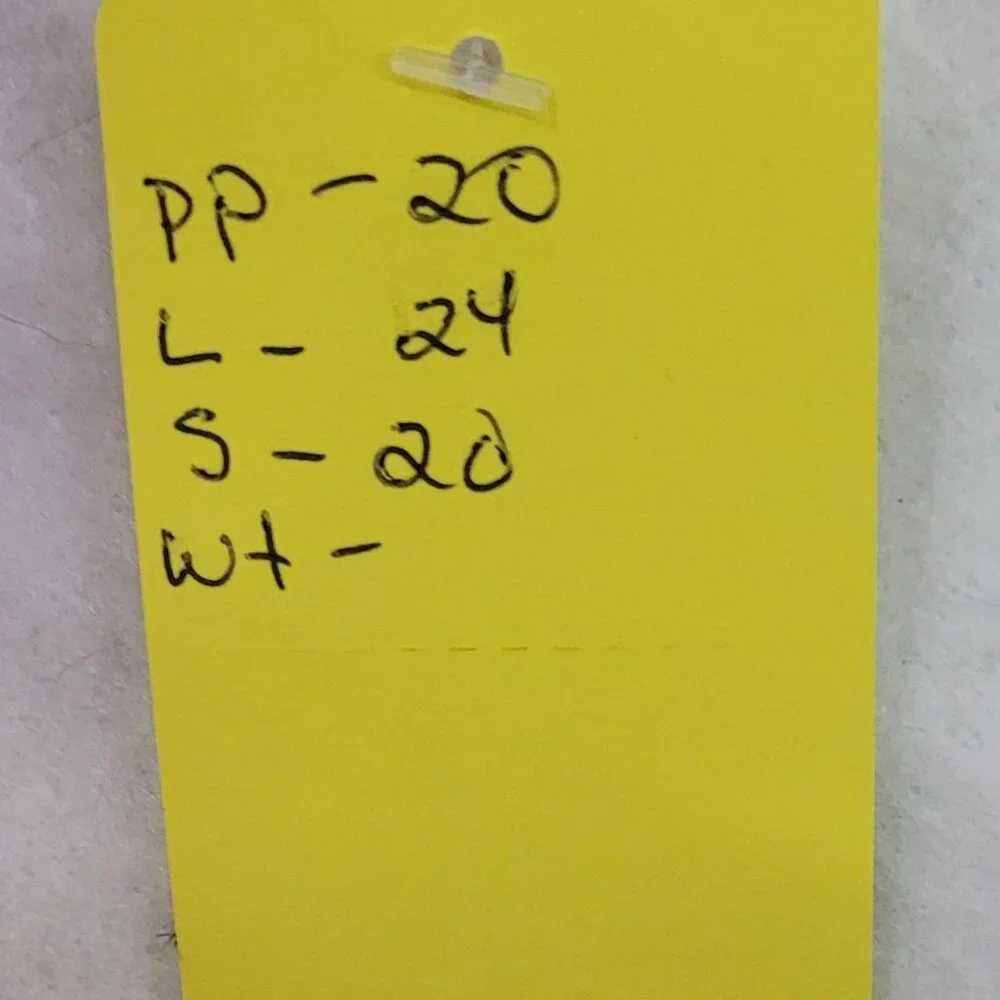 PP - 20
L - 24
S - 20
Wt -